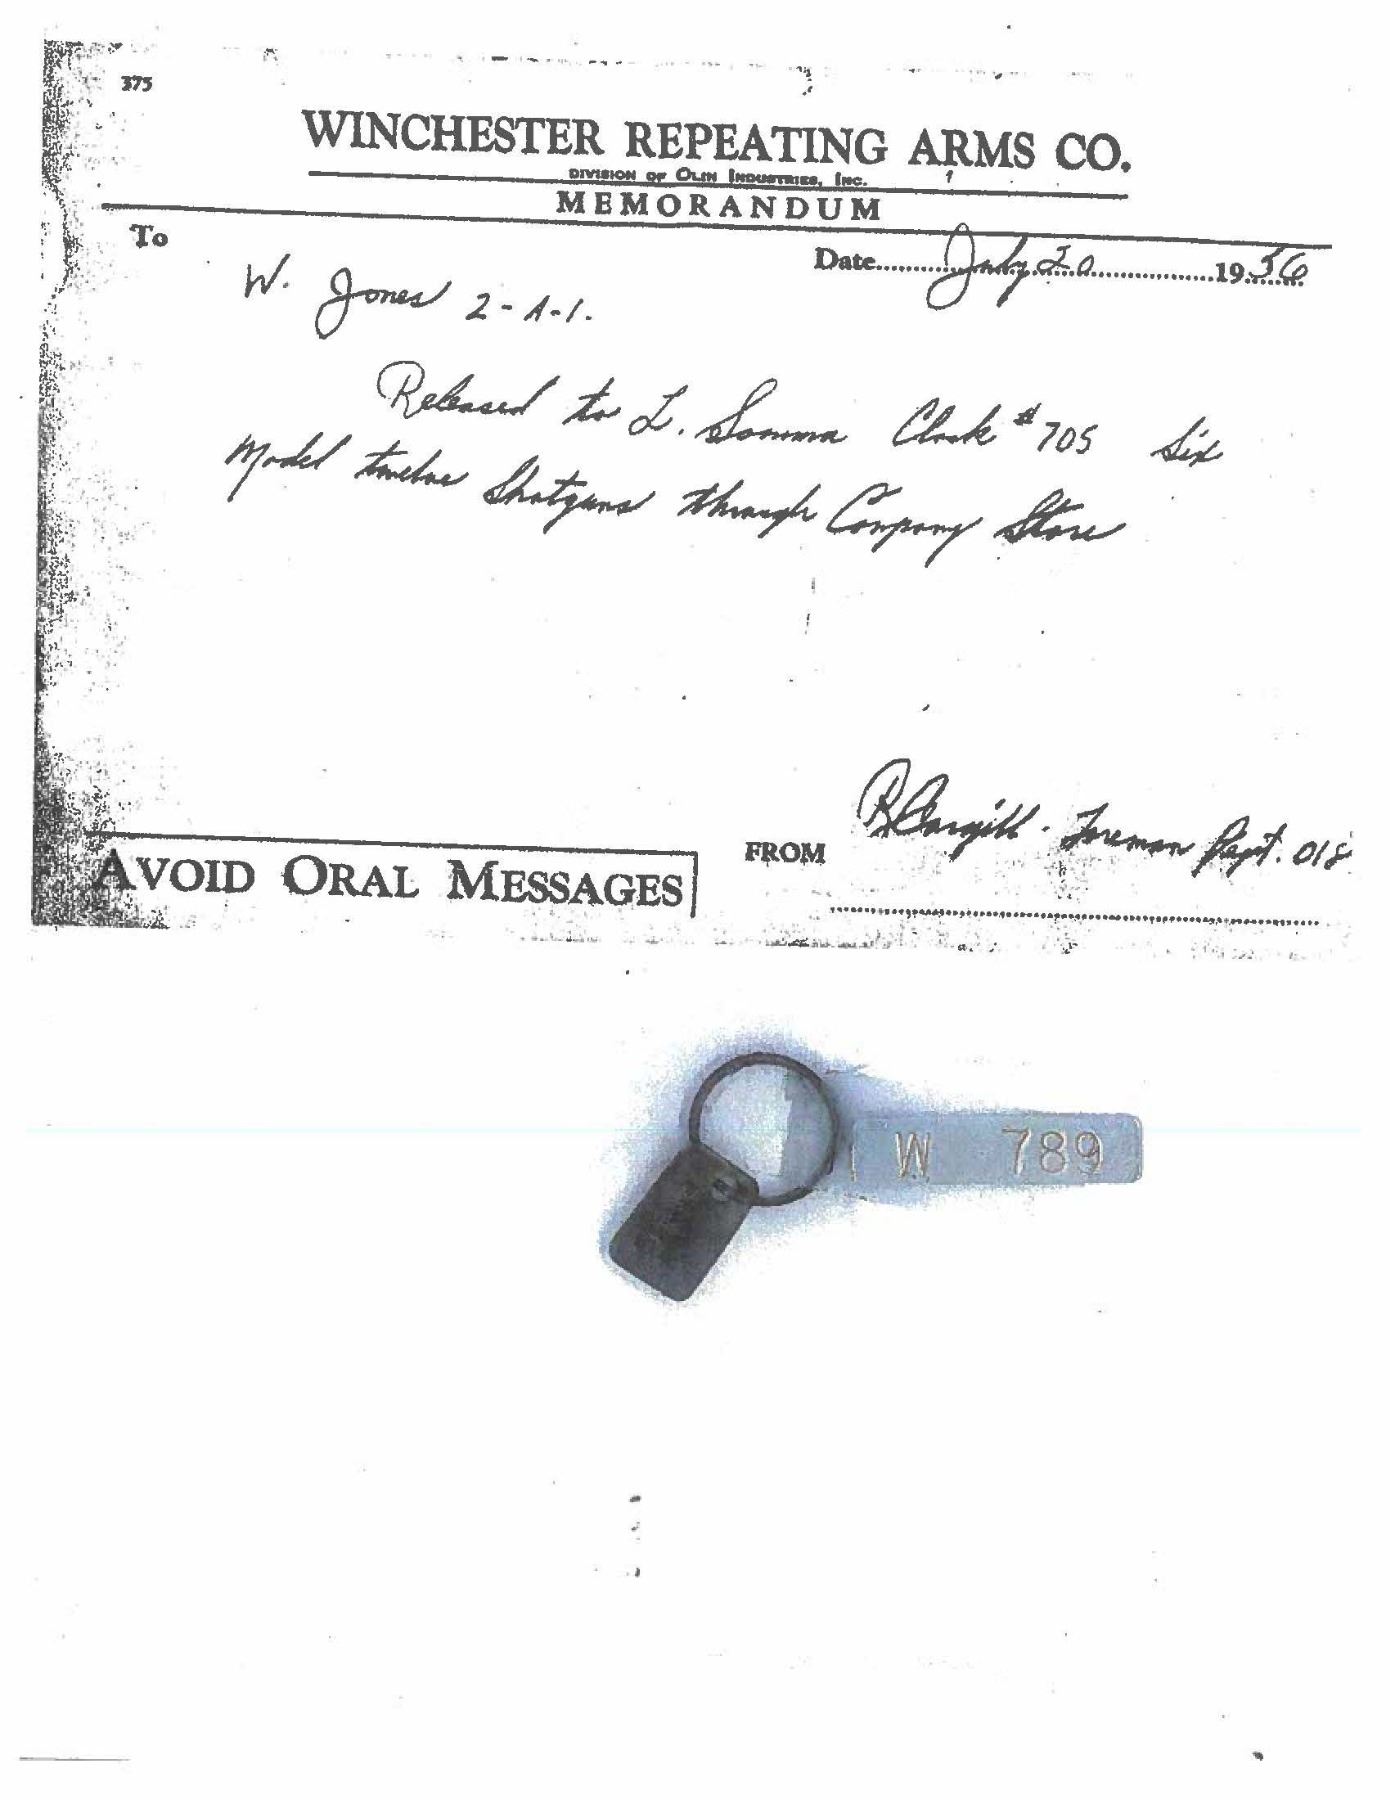 375
WINCHESTER REPEATING ARMS CO.
DIVISION OF OLIN INDUSTRIES, INC.
MEMORANDUM
To
Date July 20 1956
W. Jones 2-A-1.
Released to L. Somma Clock #705 Six
Model twelve Shotguns through Company Store
AVOID ORAL MESSAGES
FROM
R Cargill - Foreman Dept. 018
W 789